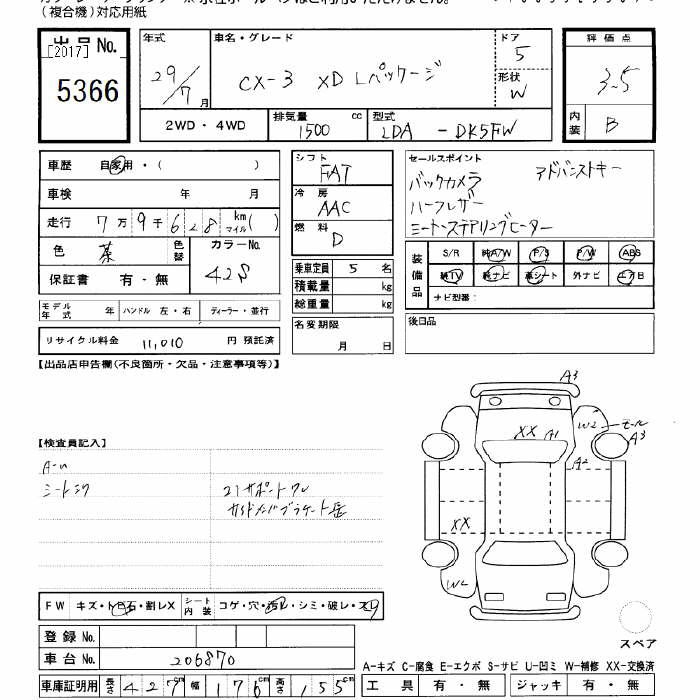 (複合機)対応用紙
出品 No.
[2017]
5366
年式
29/7 月
車名・グレード
CX-3 XD Lパッケージ
ドア
5
形状
W
評価点
3.5
内装
B
2WD・4WD
排気量
1500 cc
型式
LDA - DK5FW
車歴 自家用・( )
車検 年 月
走行 7万9千628 km マイル( )
色 茶 色替
カラーNo.
42S
保証書 有・無
シフト
FAT
冷房
AAC
燃料
D
乗車定員 5 名
積載量 kg
総重量 kg
セールスポイント
アドバンストキー
バックカメラ
ハーフレザー
シートステアリングヒーター
装備品
S/R 純A/W P/S P/W ABS
純TV 純ナビ 革シート 外ナビ エアB
ナビ型番:
モデル年式 年 ハンドル 左・右 ディーラー・並行
名変期限
月 日
後日品
リサイクル料金 11,010 円 預託済
【出品店申告欄(不良箇所・欠品・注意事項等)】
A3
XX A1
W2 モール
A3
A2
XX
W2
【検査員記入】
シート
コアサポートワレ
サイドメンバブラケット歪
FW キズ・トビ石・割レX シート内装 コゲ・穴・汚レ・シミ・破レ・スレ
登録 No.
車台 No. 206870
スペア
A-キズ C-腐食 E-エクボ S-サビ U-凹ミ W-補修 XX-交換済
車庫証明用 長さ 427cm 幅 176cm 高さ 155cm
工具 有・無 ジャッキ 有・無